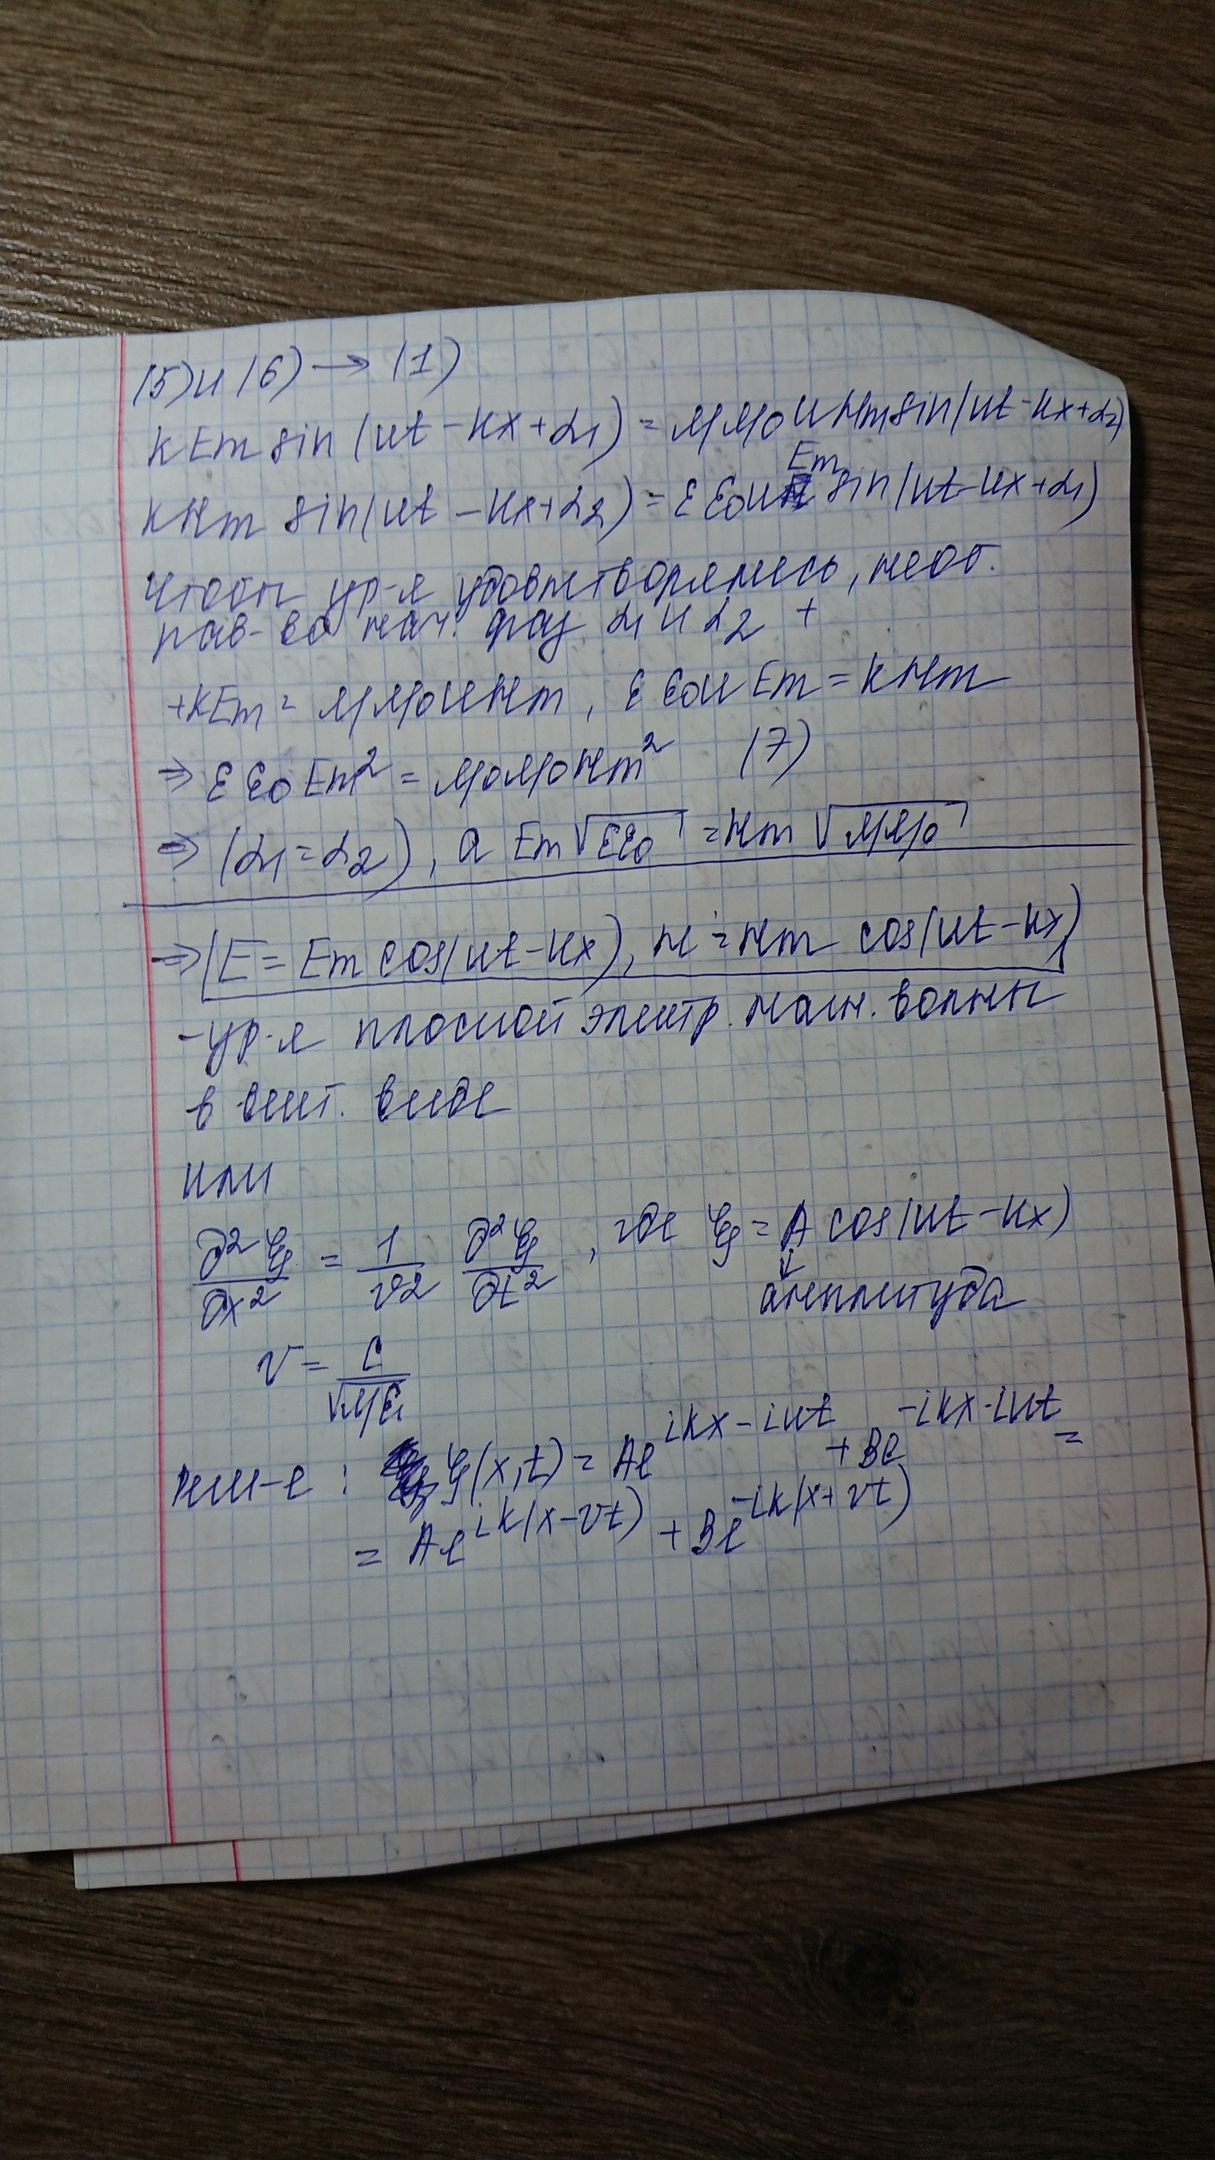 (5) и (6) → (1)
kEm sin(ωt - kx + α1) = μμ0ωHm sin(ωt - kx + α2)
kHm sin(ωt - kx + α2) = εε0ωEm sin(ωt - kx + α1)
Чтобы ур-я удовлетворялись, необ.
рав-во нач. фаз α1 и α2 +
+ kEm = μμ0ωHm, εε0ωEm = kHm
⇒ εε0Em² = μ0μ0Hm² (7)
⇒ (α1 = α2), а Em√εε0 = Hm√μμ0
⇒ E = Em cos(ωt - kx), H = Hm cos(ωt - kx)
- ур-я плоской электр. магн. волны
в вект. виде
или
∂²ξ/∂x² = 1/v² ∂²ξ/∂t², где ξ = A cos(ωt - kx)
↓
амплитуда
v = c/√με
ξ(x,t) = Ae^{ikx - iωt} + Be^{-ikx - iωt} =
= Ae^{ik(x - vt)} + Be^{-ik(x + vt)}